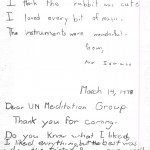 I think the rabbit was cute
I loved every bit of music.
The instruments were wonderful.
March 14, 1978
Dear UN Meditation Group
Thank you for coming.
Do you know what I liked,
I liked everything but the best was